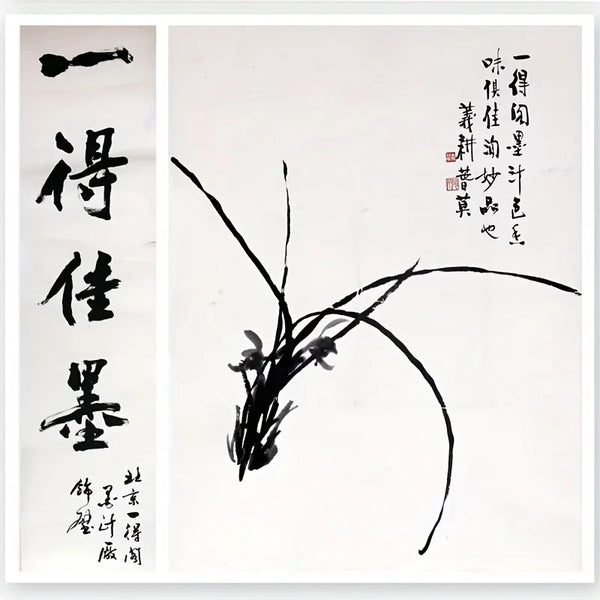 一得佳墨
北京一得阁
墨汁厰
飾壁
一得阁墨汁色香
味俱佳洵妙品也
義耕